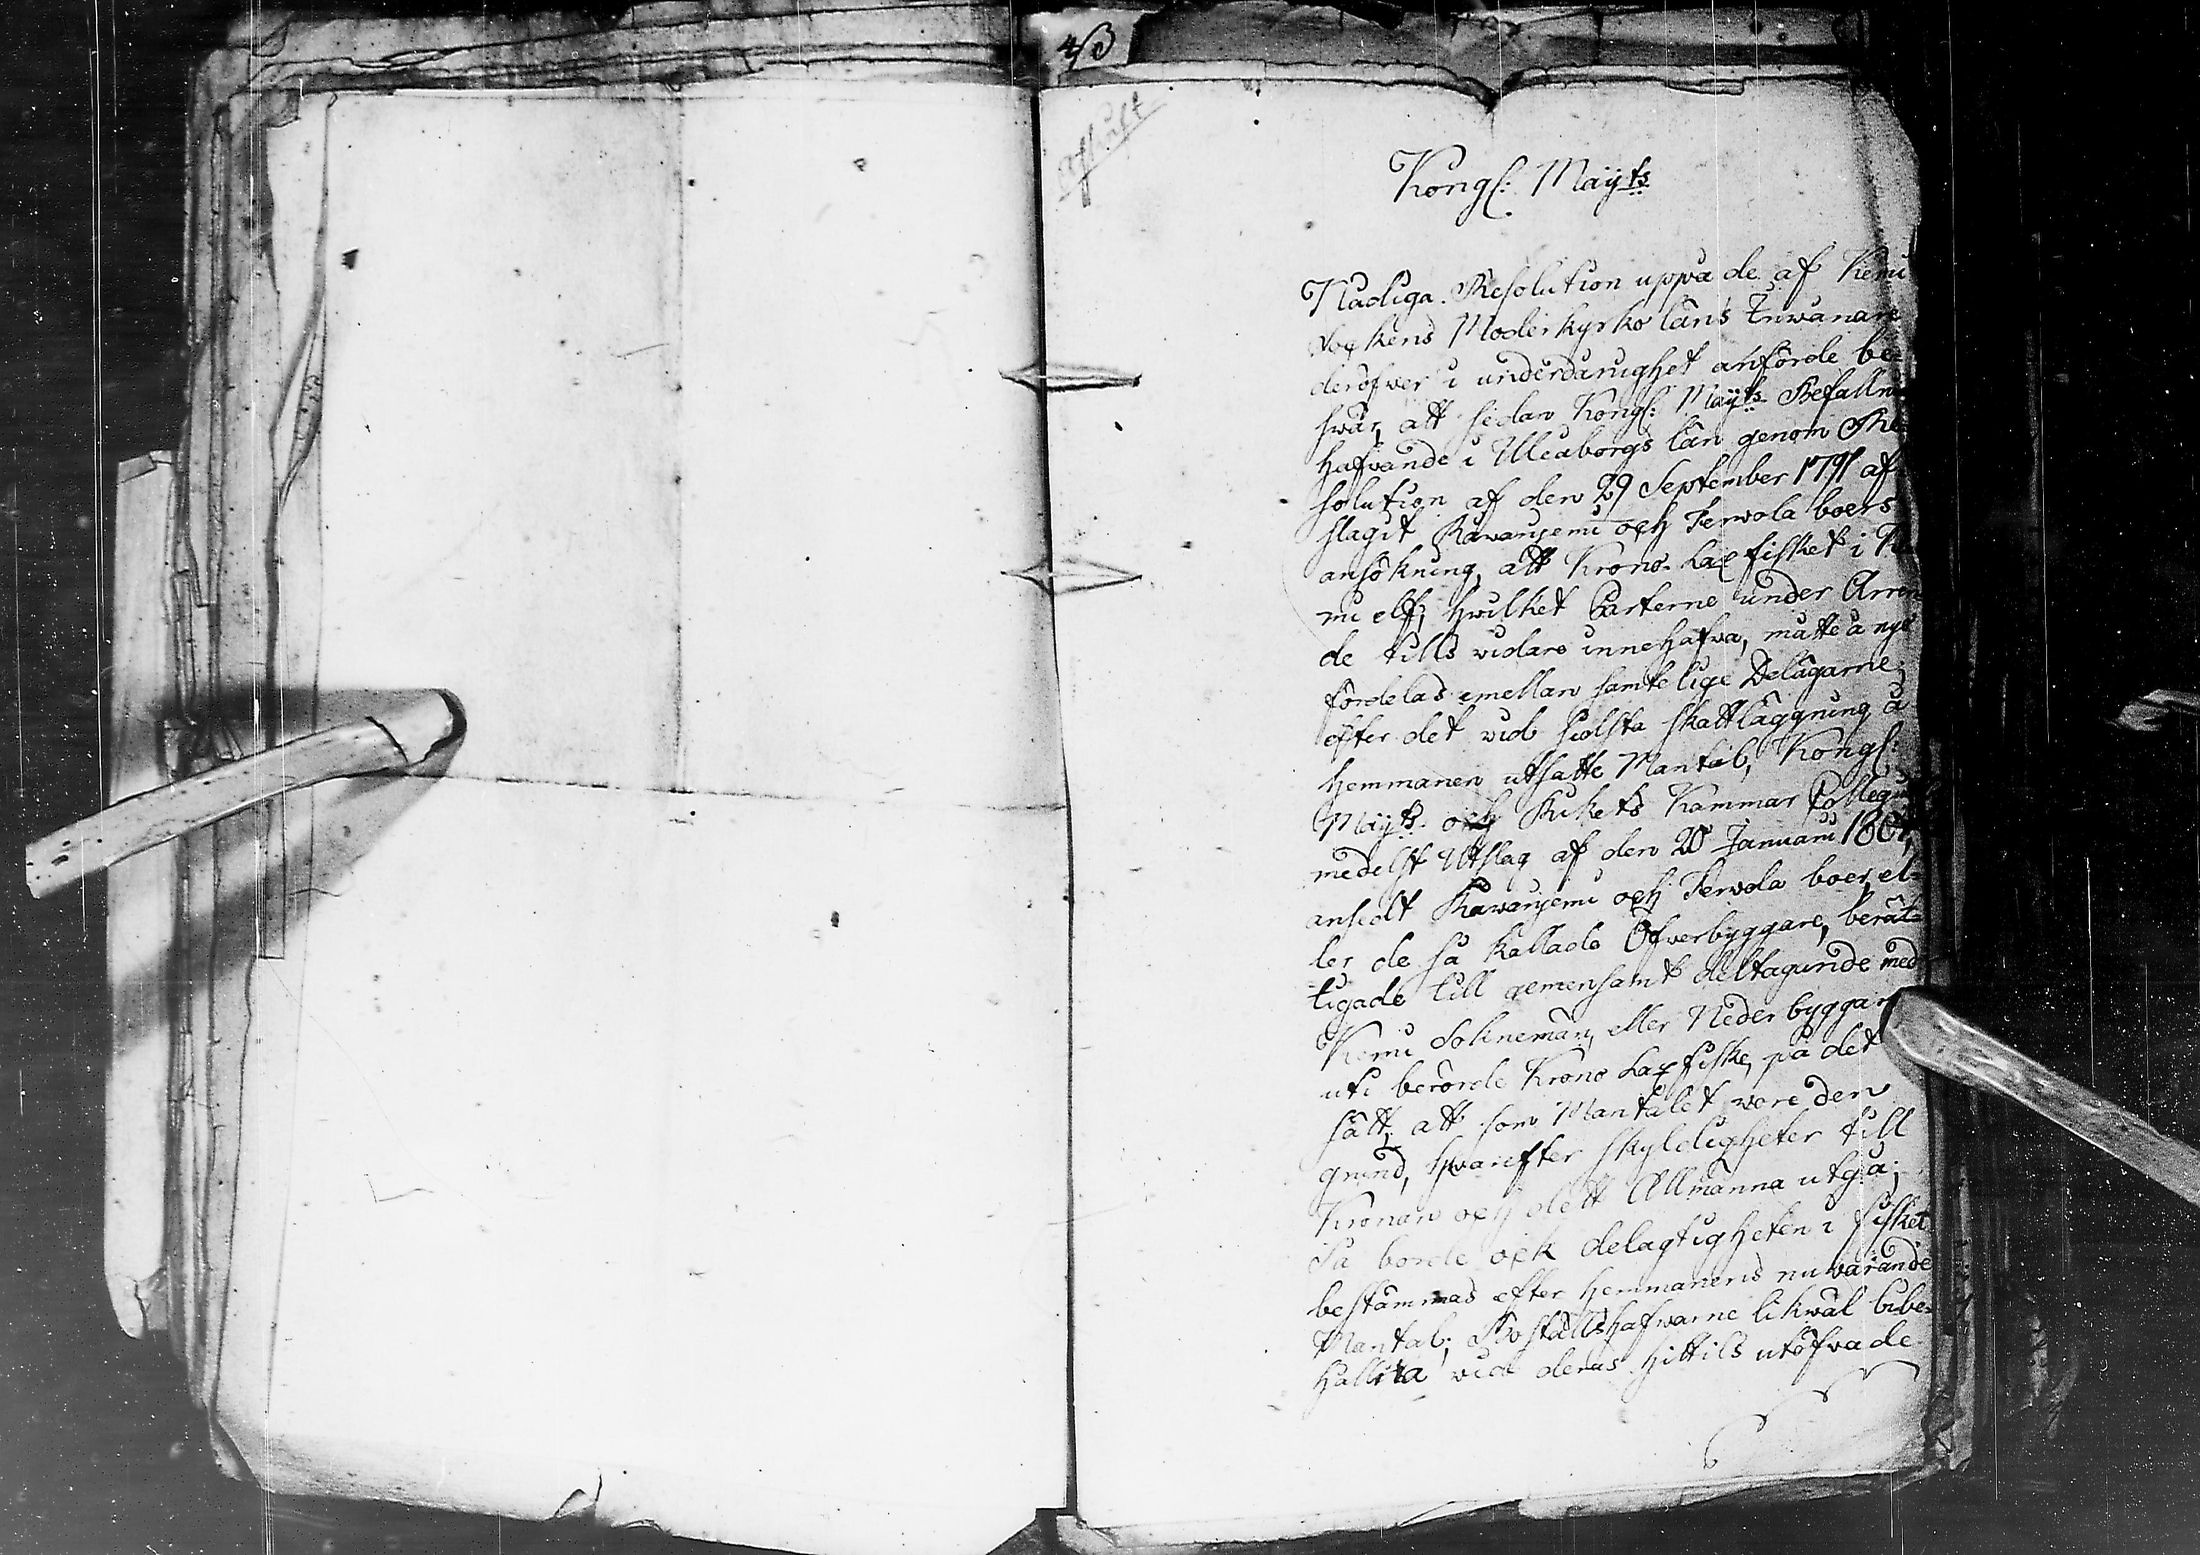 Afskrift
Kongl: Maÿts
Nådiga Resolution uppå de af Kemi
Sockens Moderkyrko läns Inwånare
deröfwer i underdånighet anförde be=
swär, att sedan Kongl: Maÿts Befallni
hafvande i Uleåborgs län genom Re
solution af den 29 September 1791 af
slagit Råwanjemi och Terwola boers
ansökning, att Krono Laxfisket i Ke
mi elf, hwilket Parterne under Arren
de tills vidare innehafva, måtte å nyo
fördelas emellan samtelige Delägarne,
efter det vid sidsta skattläggning å
Hemmanen utsatte Mantal, Kongl:
Maÿts och Rikets Kammar Collegium
medelst Utslag af den 20 Januarii
ansedt Råwanjemi och Terwola boer, el=
ler de så kallade Öfverbyggare, berät=
tigade till gemensamt deltagande med
Kemi Sokneman, eller Nederbyggare
uti berörde Krono Laxfiske, på det
sätt, att som Mantalet vore den
grund, hvarefter skyldigheter till
Kronan och dett Allmänna utgå;
Så borde ock delagtigheten i fisket
bestämmas efter Hemmanens nuvarande
Mantal; Boställshafvarne likwäl bibe=
hållna vid deras hittils utöfvade